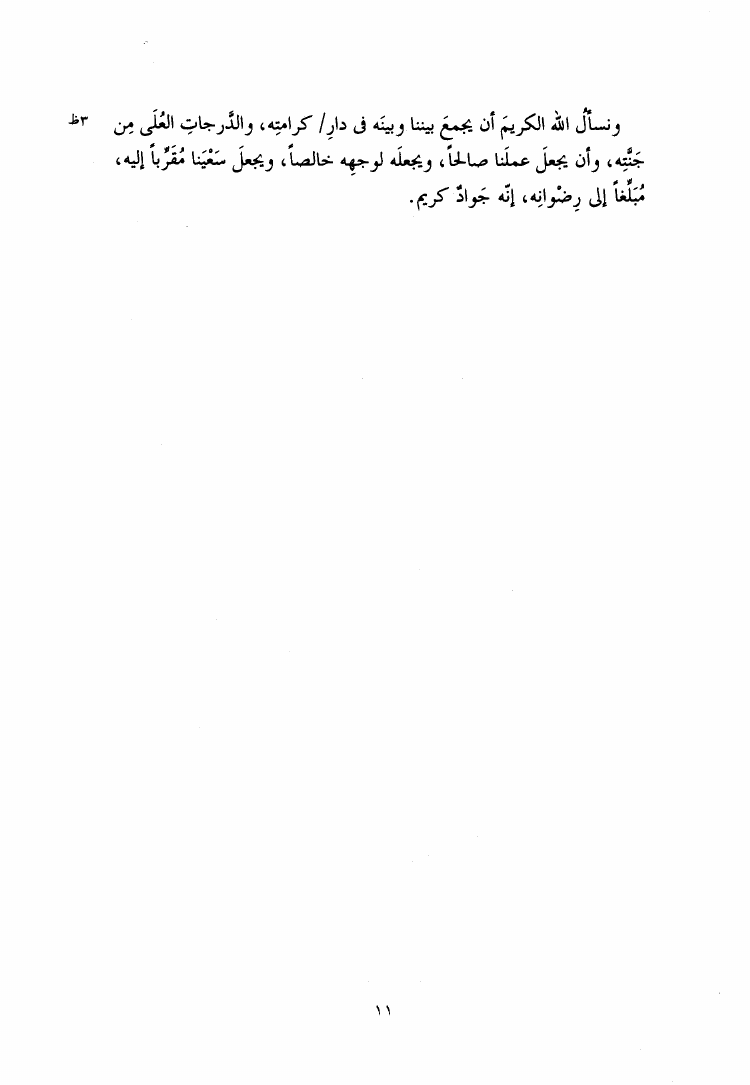 ونسألُ الله الكريمَ أن يجمعَ بيننا وبينَه فى دارِ/ كرامتِه، والدَّرجاتِ العُلَى مِن ٣ظ
جَنَّتِه، وأن يجعلَ عملَنا صالحاً، ويجعلَه لوجهِه خالصاً، ويجعلَ سَعْيَنا مُقَرِّباً إليه،
مُبَلِّغاً إلى رِضْوانِه، إنّه جَوادٌ كريم.
١١